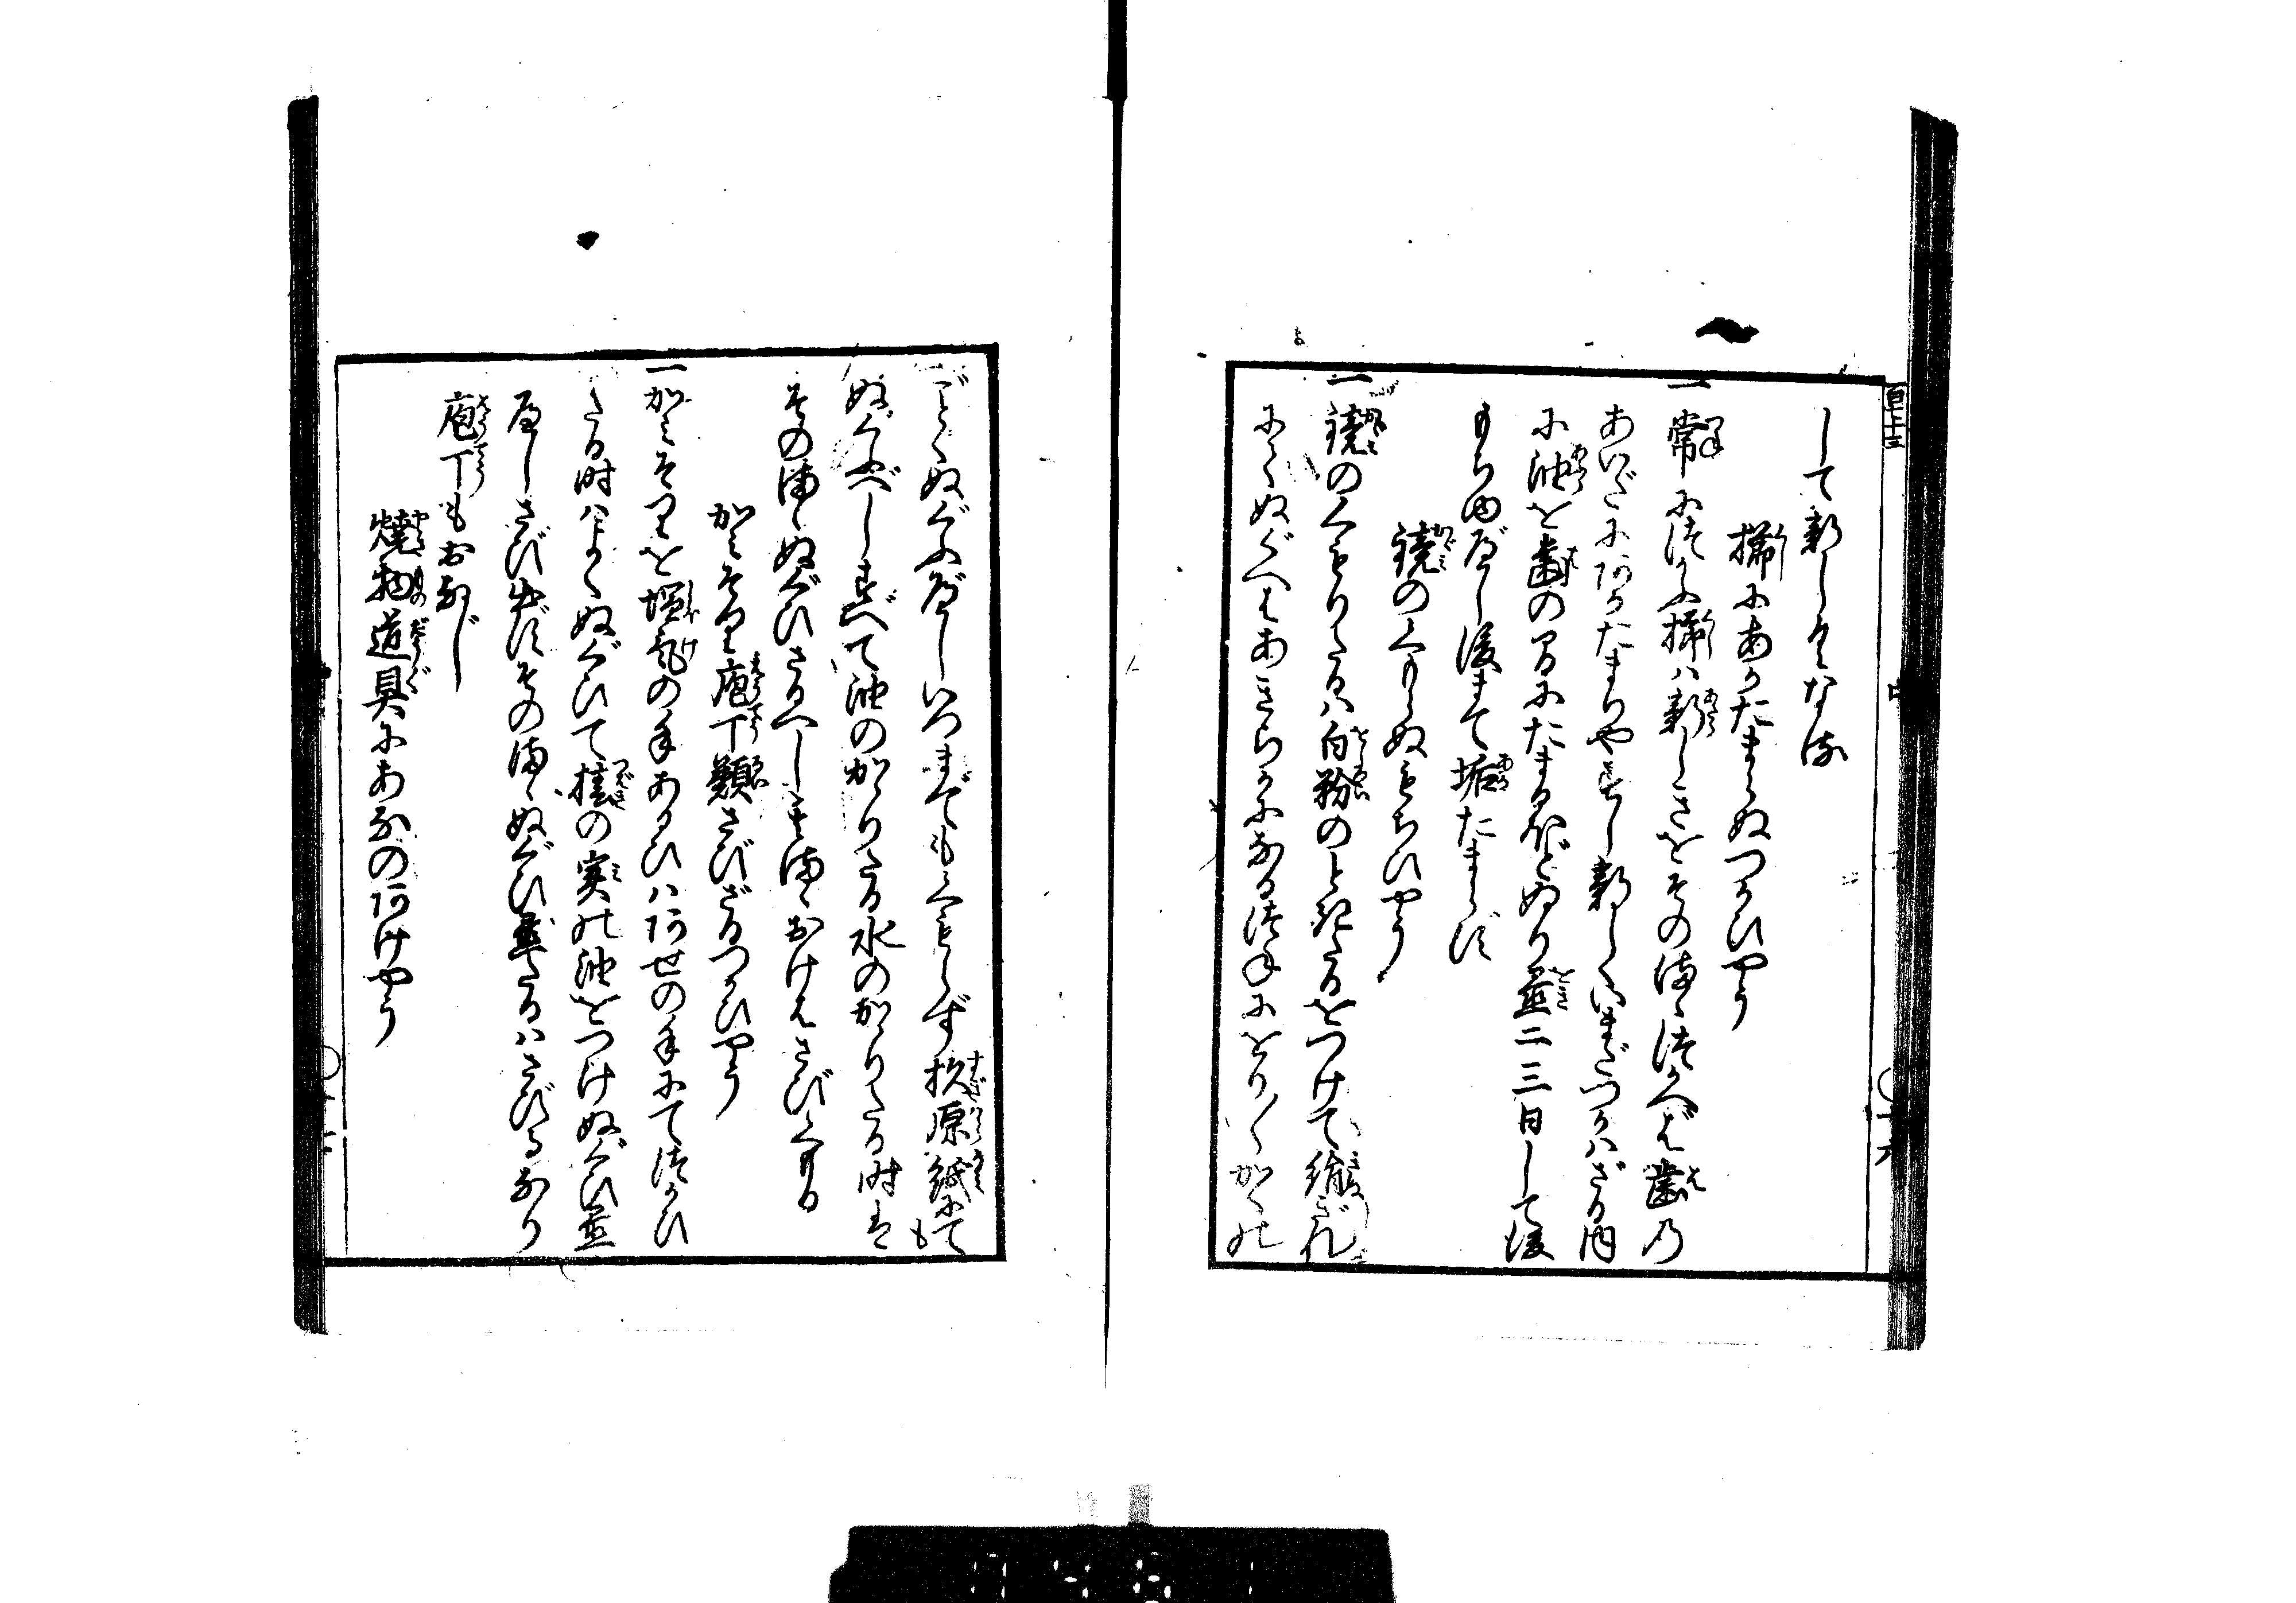 して新しくなる
櫛にあかたまらぬつかひやう
一常に伝ふ櫛ハ新しきをその侭つかへば歯乃
あいだにあかたまりやすし新しくいまだつかハざる内
に油を歯の間にたまるほどぬり置二三日して後
もちゆべし後まで垢たまらず
鏡のくもらぬもちひやう
一鏡のくもりたるハ白粉のときたるをつけて絹ぎれ
にてぬぐへばあきらかになる常にをり〳〵かくの
ごとくぬぐふべしいつまでもくもらず杉原紙にても
ぬぐふべしすべて油のかゝりたる水のかゝりたる時は
その侭ぬぐひさるべし其侭おけばさびくもる
かみそり庖丁類さびざるつかひやう
一かみそりを塩気の手あるひハあせの手にてつかひ
たる時ハよくぬぐひて椿の実の油をつけぬぐひ置
べしさび出ずその侭ぬぐひ置たるハさびるなり
庖丁もおなじ
焼物道具にあなのあけやう
百七十三
中